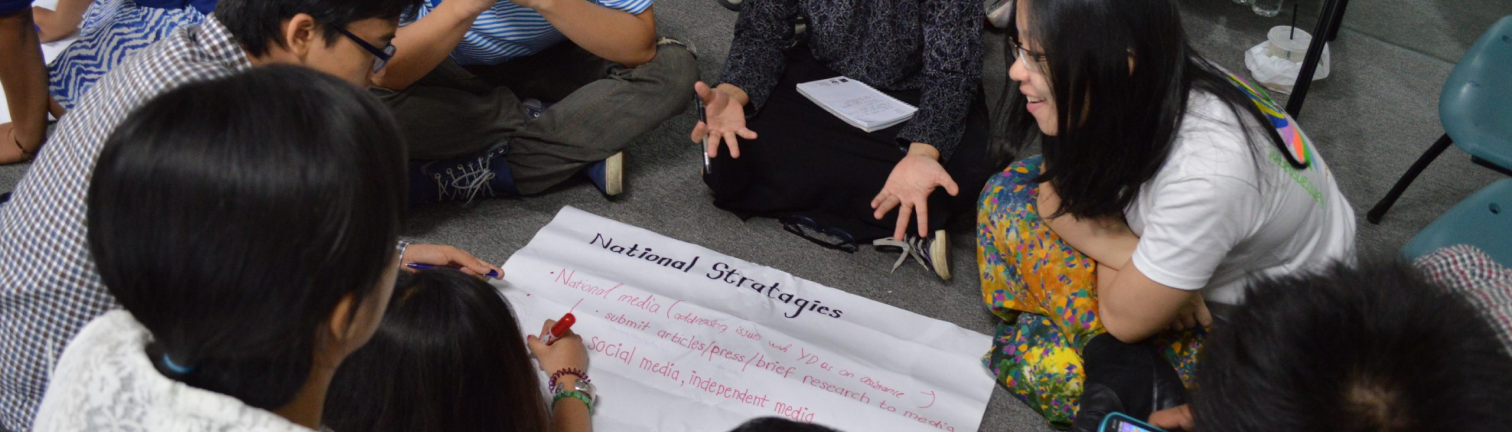 National Stratagies
· National media (addressing issues with YD as an audience →)
· submit articles/press/brief research to media
social media, independent media